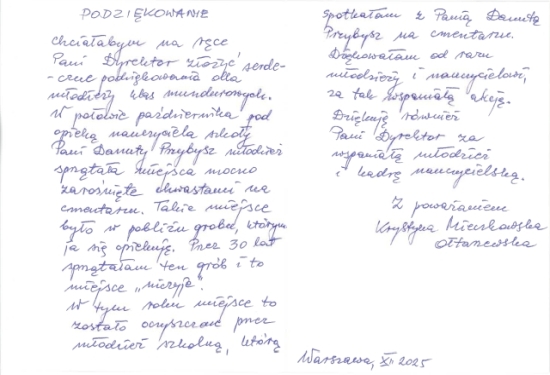 PODZIĘKOWANIE
chciałabym na ręce
Pani Dyrektor złożyć serde-
-czne podziękowania dla
młodzieży klas mundurowych.
W połowie października pod
opieką nauczyciela szkoły
Pani Danuty Przybysz młodzież
sprzątała miejsca mocno
zarośnięte chwastami na
cmentarzu. Takie miejsce
było w pobliżu grobu, którym
ja się opiekuję. Przez 30 lat
sprzątałam ten grób i to
miejsce „niczyje".
W tym roku miejsce to
zostało oczyszczone przez
młodzież szkolną, którą
spotkałam z Panią Danutą
Przybysz na cmentarzu.
Dziękowałam od razu
młodzieży i nauczycielowi,
za tak wspaniałą akcję.
Dziękuję również
Pani Dyrektor za
wspaniałą młodzież
i kadrę nauczycielską.
Z poważaniem
Krystyna
Warszawa, XI 2025